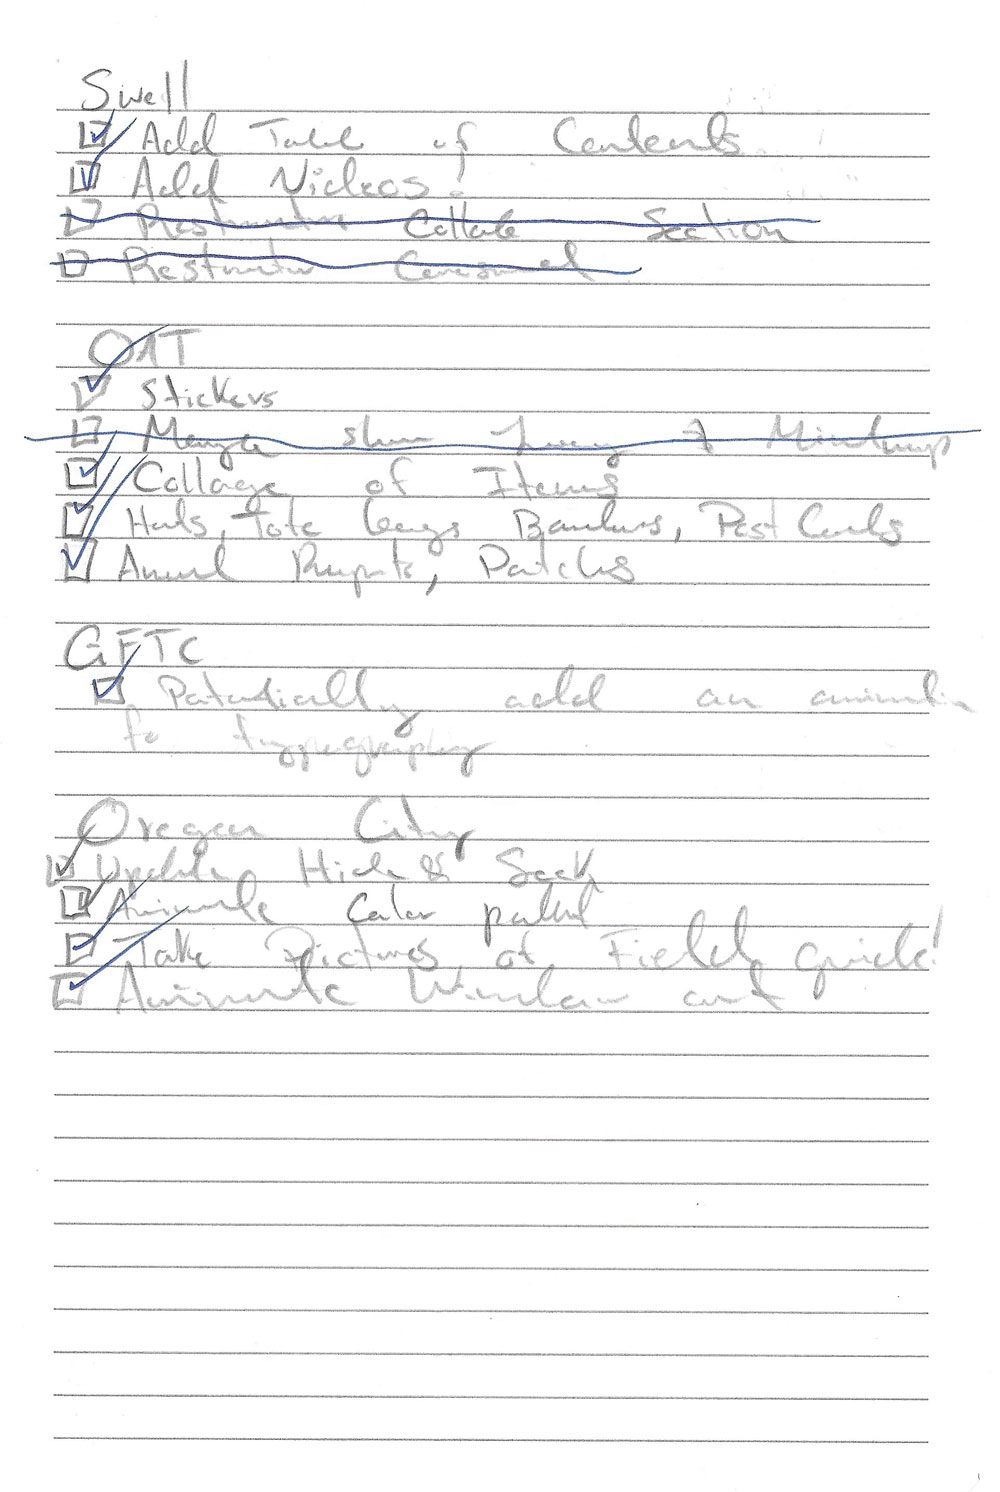 Swell
Add Table of Contents
Add Videos!
Restructure Collab Section
Restructure Carousel
OAT
Stickers
Collage of Items
Hats, Tote bags Bandanas, Post Cards
Annual Reports, Patches
GFTC
Potentially add an animation
to typography
Oregon City
Update Hide & Seek
Animate Color
Take Pictures of Field guide!
Animate Window art